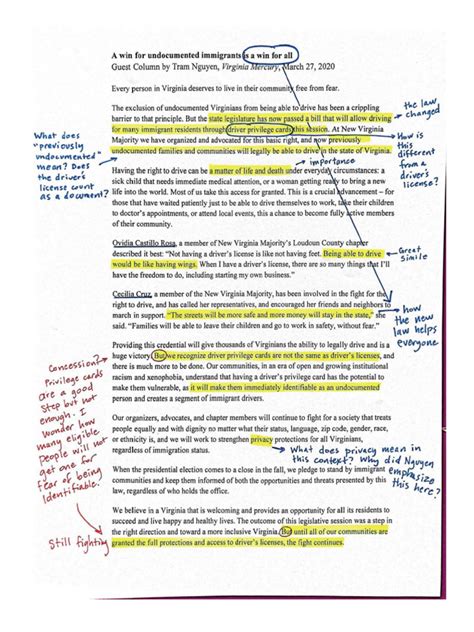 A win for undocumented immigrants is a win for all
Guest Column by Tram Nguyen, Virginia Mercury, March 27, 2020
Every person in Virginia deserves to live in their community free from fear.
The exclusion of undocumented Virginians from being able to drive has been a crippling
barrier to that principle. But the state legislature has now passed a bill that will allow driving
for many immigrant residents through driver privilege cards this session. At New Virginia
Majority we have organized and advocated for this basic right, and now previously
undocumented families and communities will legally be able to drive in the state of Virginia.
the law
changed
How is
this
different
from a
driver's
license?
What does
"previously
undocumented"
mean? Does
the driver's
license count
as a document?
importance
Having the right to drive can be a matter of life and death under everyday circumstances: a
sick child that needs immediate medical attention, or a woman getting ready to bring a new
life into the world. Most of us take this access for granted. This is a change advancement – for
those that have waited patiently just to be able to drive themselves to work, take their children
to doctor's appointments, or attend local events, this a chance to become fully active members
of their community.
Ovidia Castillo Rosa, a member of New Virginia Majority's Loudoun County chapter
described it best: "Not having a driver's license is like not having feet. Being able to drive
would be like having wings. When I have a driver's license, there are so many things that I'll
have the freedom to do, including starting my own business."
Great
simile
Cecilia Cruz, a member of the New Virginia Majority, has been involved in the fight for the
right to drive, and has called her representatives, and encouraged her friends and neighbors to
march in support. "The streets will be more safe and more money will stay in the state," she
said. "Families will be able to leave their children and go to work in safety, without fear."
how
the new
law helps
everyone
Providing this credential will give thousands of Virginians the ability to legally drive and is a
huge victory. But we recognize driver privilege cards are not the same as driver's licenses, and
there is much more to be done. Our communities, in an era of open and growing institutional
racism and xenophobia, understand that having a driver privilege card has the potential to
make them vulnerable, as it will make them immediately identifiable as an undocumented
person and creates a segment of immigrant drivers.
Concession?
Privilege cards
are a good
step but not
enough. I
wonder how
many eligible
people will not
get one for
fear of being
identifiable.
Our organizers, advocates, and chapter members will continue to fight for a society that treats
people equally and with dignity no matter what their status, language, zip code, gender, race,
or ethnicity is, and we will work to strengthen privacy protections for all Virginians,
regardless of immigration status.
What does privacy mean in
this context? Why did Nguyen
emphasize
this here?
When the presidential election comes to a close in the fall, we pledge to stand by immigrant
communities and keep them informed of both the opportunities and threats presented by this
law, regardless of who holds the office.
We believe in a Virginia that is welcoming and provides an opportunity for all its residents to
succeed and live happy and healthy lives. The outcome of this legislative session was a step in
the right direction and toward a more inclusive Virginia. But until all of our communities are
granted the full protections and access to driver's licenses, the fight continues.
Still fighting